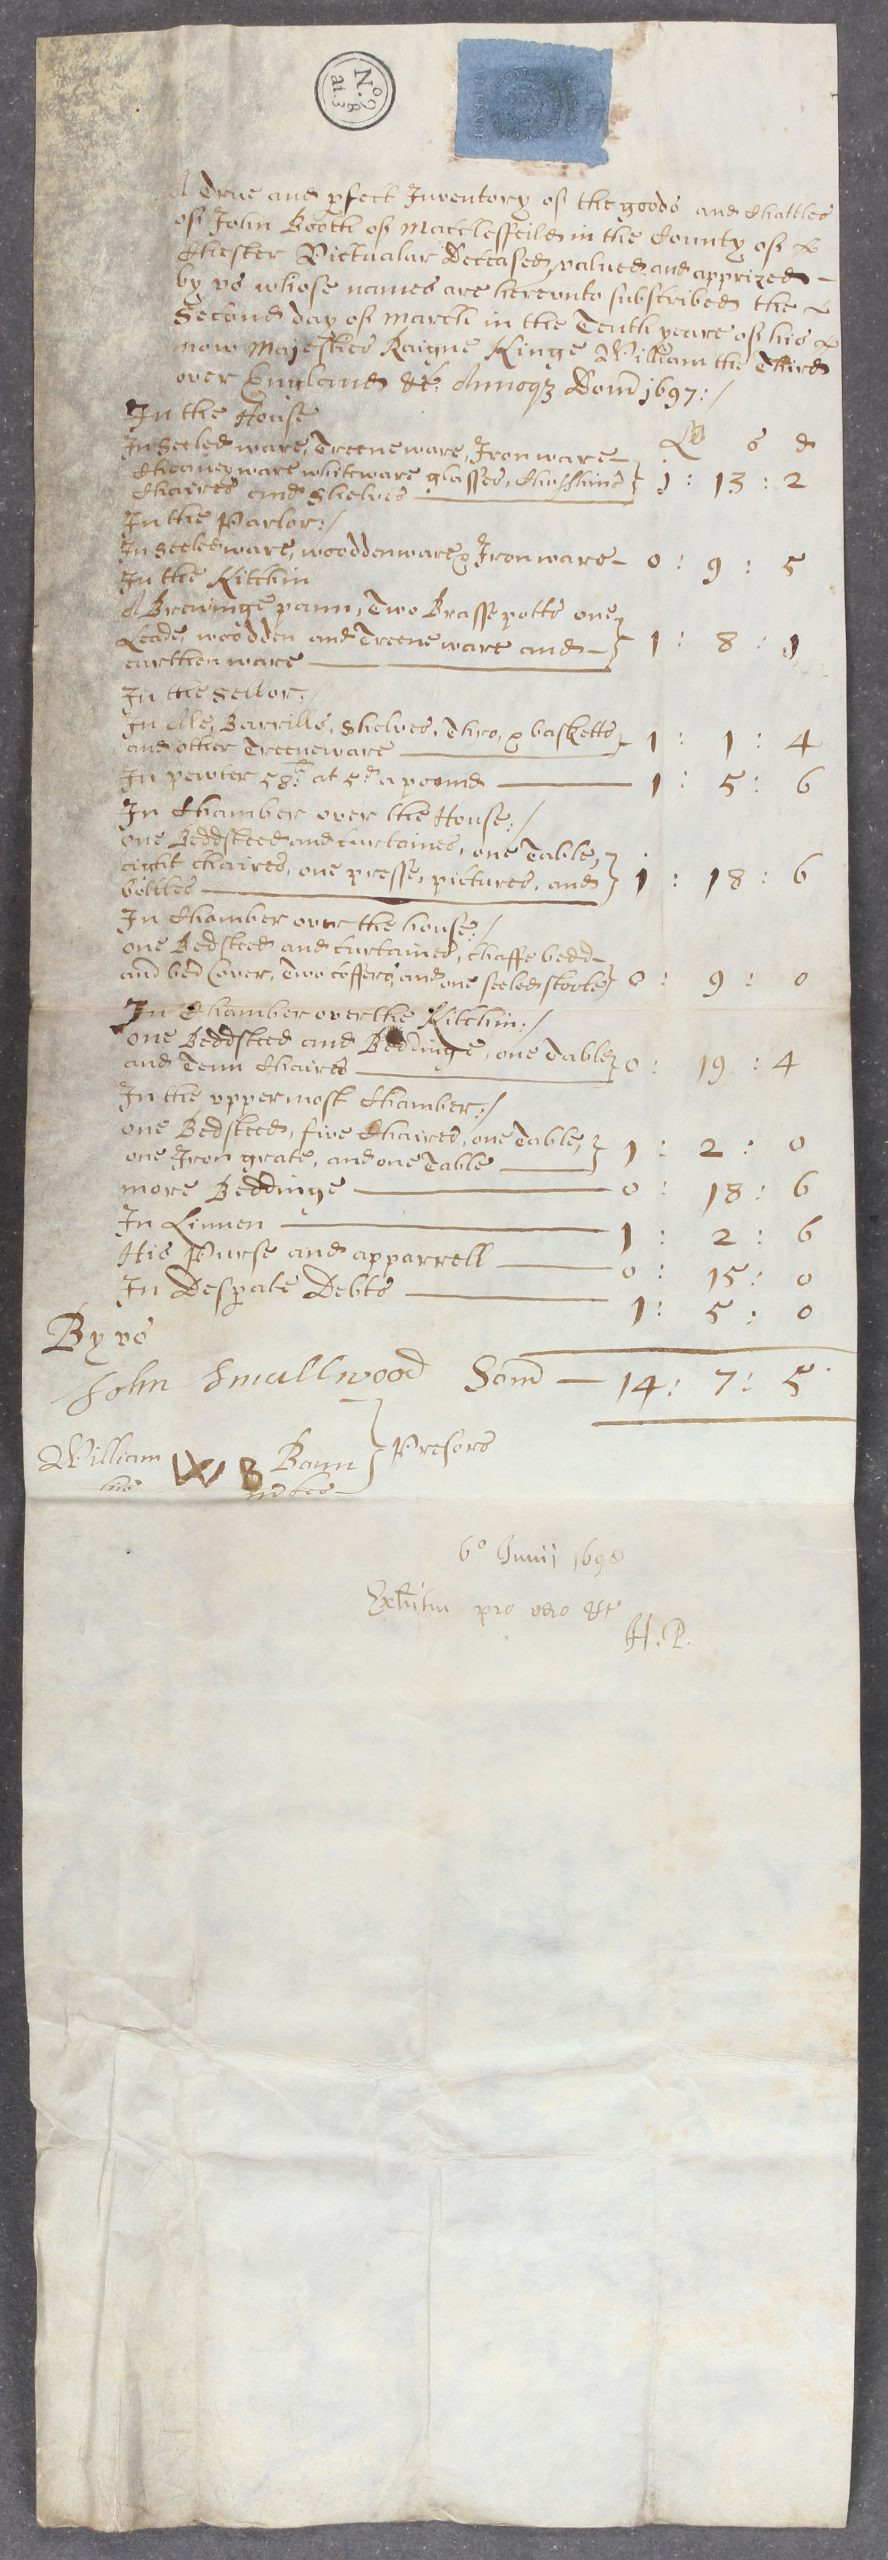 A True and pfect Inventory of the goods and Chattles
of John Booth of Macclesfeild in the County of
Chester Victualar Deceased, valued and apprized
by vs whose names are herevnto subscribed the
Second day of March in the Tenth yeare of his
now Majesties Raigne Kinge William the Third
over England &c. Annoqz Dom 1697:/
In the House
In Seeled ware, Treene ware, Iron ware
Cheaney ware whiteware glasses, Chusshins
Chaires and Shelves 1 : 13 : 2
s d
In the Parlor:/
In Seeled ware, woodden ware & Iron ware 0 : 9 : 5
In the Kitchin
A Brewinge pann, Two Brasse potts one
Leade, woodden and Treene ware and
earthen ware 1 : 8 : 1
In the Sellor:/
In Ale, Barrills, Shelves, Thro, & basketts
and other Treeneware 1 : 1 : 4
In pewter 58: at 5d a poound 1 : 5 : 6
In Chamber over the House:/
one Beddsteed and Curtaines, one Table,
eight Chaires, one presse, pictures, and
bottles 1 : 18 : 6
In Chamber over the house:/
one Bedsteed and Curtaines, Chaffe bedd
and bed Cover, Two Coffers, and one seeled stoole 0 : 9 : 0
In Chamber over the Kitchin:/
one Beddsteed and Beddinge, one Table
and Tenn Chaires 0 : 19 : 4
In the vppermost Chamber:/
one Bedsteed, five Chaires, one Table,
one Iron grate, and one Table 1 : 2 : 0
more Beddinge 0 : 18 : 6
In Linnen 1 : 2 : 6
His Purse and apparrell 0 : 15 : 0
In Desperate Debts 1 : 5 : 0
By vs
John Smallwood Som 14 : 7 : 5
William W B Bann Presors
his marke
6o Junij 1698
Exhitu pro vero &c
H.P.